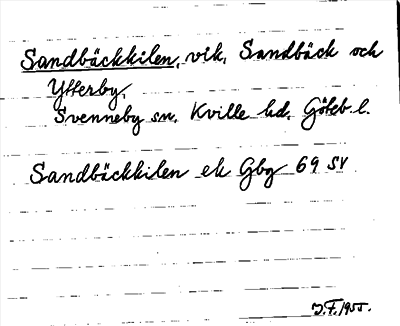 Sandbäckkilen, vik, Sandbäck och
Ytterby,
Svenneby sn. Kville hd. Göteb. l.
Sandbäckkilen ek Gbg 69 SV
J.F. 1955.